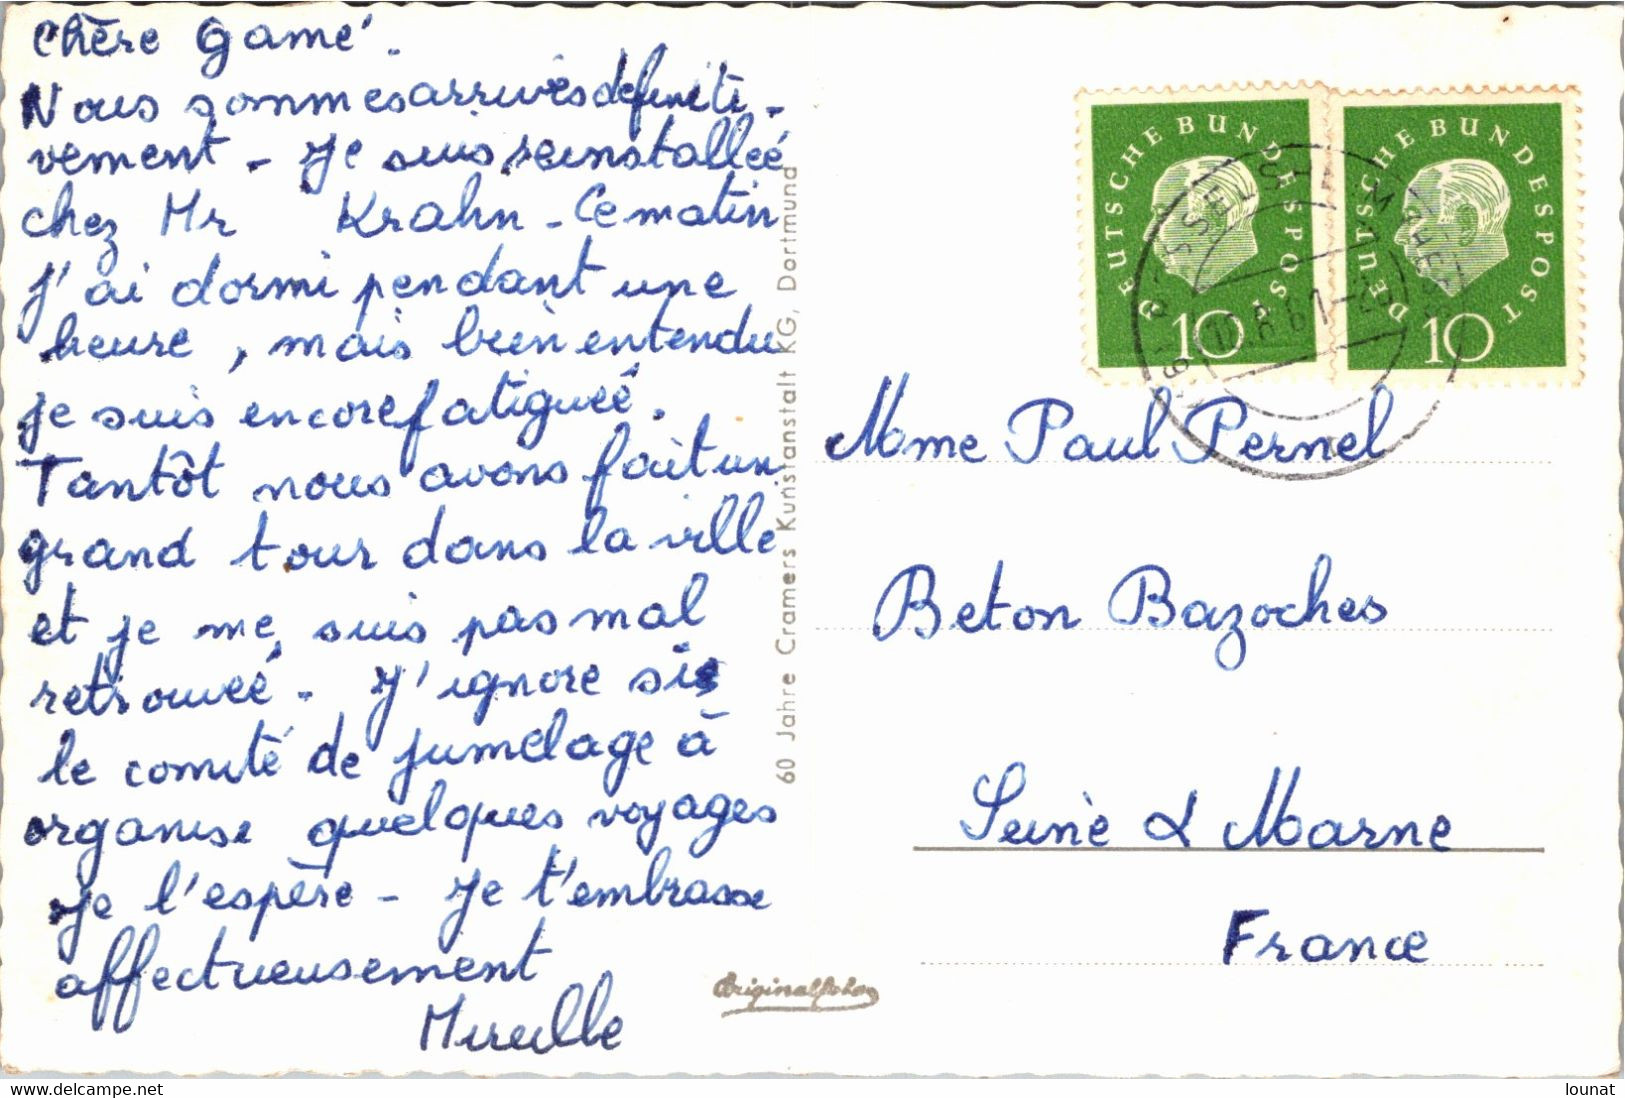 Chère Gamé.
Nous sommes arrivés définiti-
vement - Je suis réinstallée
chez Mr Krahn - Ce matin
j'ai dormi pendant une
heure, mais bien entendu
je suis encore fatiguée.
Tantôt nous avons fait un
grand tour dans la ville
et je me suis pas mal
retrouvée - J'ignore si
le comité de jumelage à
organisé quelques voyages
Je l'espère - Je t'embrasse
affectueusement
Mireille
60 Jahre Cramers Kunstanstalt KG, Dortmund
Originalfoto
DEUTSCHE BUNDESPOST
10
DEUTSCHE BUNDESPOST
10
Mme Paul Pernel
Beton Bazoches
Seine & Marne
France
delcampe.net
lounat